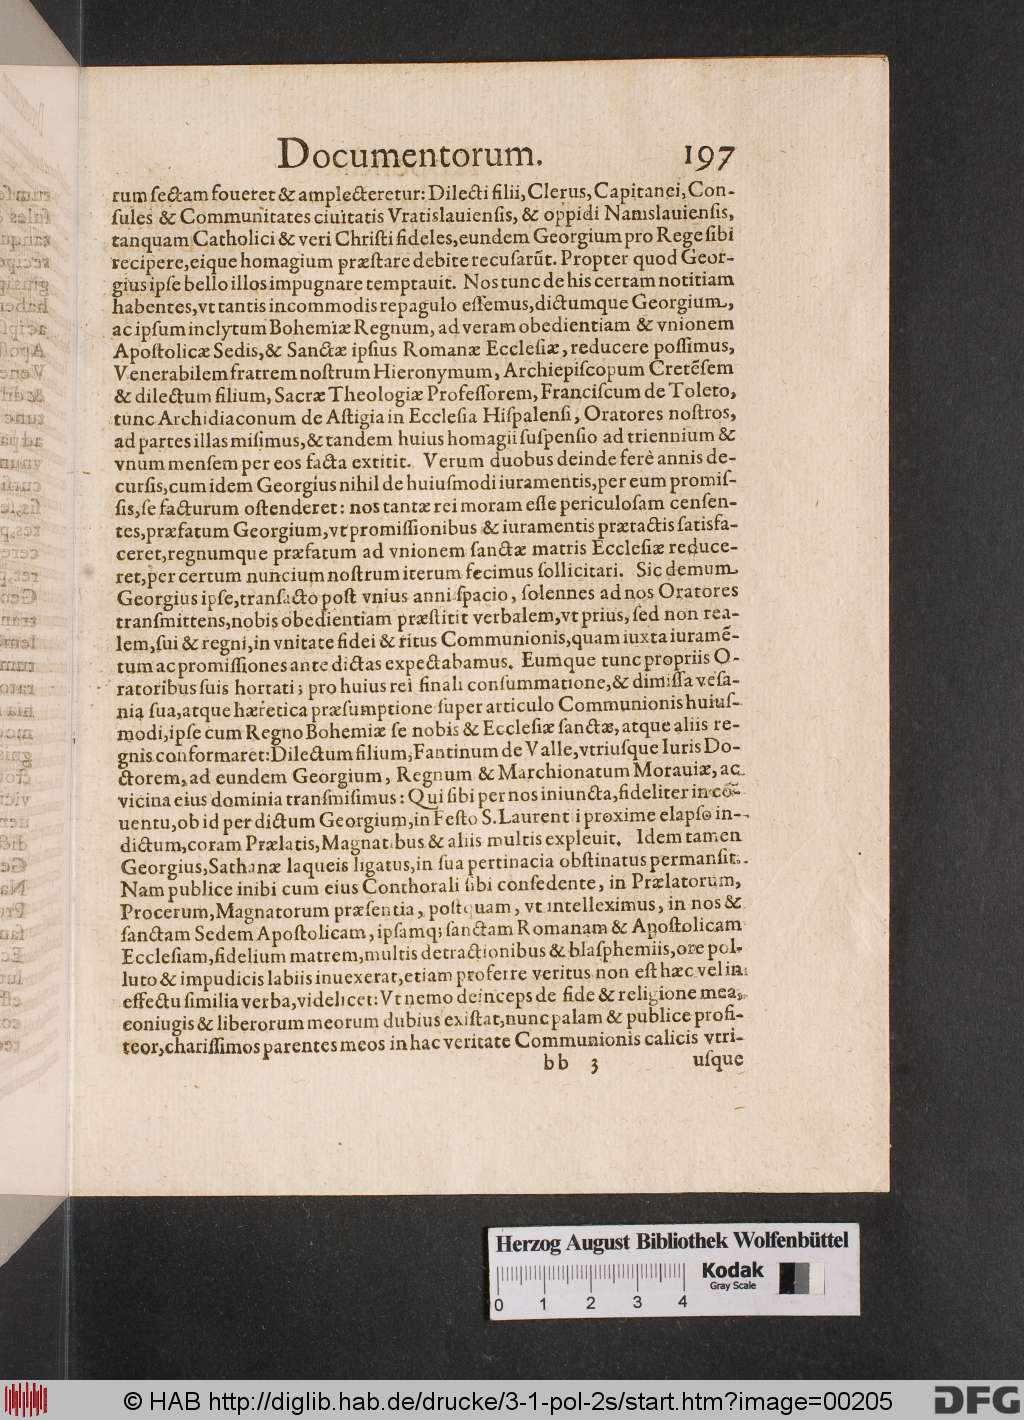 Documentorum. 197
rum ſectam foueret & amplecteretur: Dilecti filii, Clerus, Capitanei, Con-
ſules & Communitates ciuitatis Vratislauienſis, & oppidi Namslauienſis,
tanquam Catholici & veri Chriſti fideles, eundem Georgium pro Rege ſibi
recipere, eique homagium præſtare debite recuſarūt. Propter quod Geor-
gius ipſe bello illos impugnare temptauit. Nos tunc de his certam notitiam
habentes, vt tantis incommodis repagulo eſſemus, dictumque Georgium,
ac ipſum inclytum Bohemiæ Regnum, ad veram obedientiam & vnionem
Apoſtolicæ Sedis, & Sanctæ ipſius Romanæ Eccleſiæ, reducere poſſimus,
Venerabilem fratrem noſtrum Hieronymum, Archiepiſcopum Cretēſem
& dilectum filium, Sacræ Theologiæ Profeſſorem, Franciſcum de Toleto,
tunc Archidiaconum de Aſtigia in Eccleſia Hiſpalenſi, Oratores noſtros,
ad partes illas miſimus, & tandem huius homagii ſuſpenſio ad triennium &
vnum menſem per eos facta extitit. Verum duobus deinde ferè annis de-
curſis, cum idem Georgius nihil de huiuſmodi iuramentis, per eum promiſ-
ſis, ſe facturum oſtenderet: nos tantæ rei moram eſſe periculoſam cenſen-
tes, præfatum Georgium, vt promiſſionibus & iuramentis prætactis ſatisfa-
ceret, regnumque præfatum ad vnionem ſanctæ matris Eccleſiæ reduce-
ret, per certum nuncium noſtrum iterum fecimus ſollicitari. Sic demum
Georgius ipſe, tranſacto poſt vnius anni ſpacio, ſolennes ad nos Oratores
tranſmittens, nobis obedientiam præſtitit verbalem, vt prius, ſed non rea-
lem, ſui & regni, in vnitate fidei & ritus Communionis, quam iuxta iuramē-
tum ac promiſſiones ante dictas expectabamus. Eumque tunc propriis O-
ratoribus ſuis hortati; pro huius rei finali conſummatione, & dimiſſa veſa-
nia ſua, atque hæretica præſumptione ſuper articulo Communionis huiuſ-
modi, ipſe cum Regno Bohemiæ ſe nobis & Eccleſiæ ſanctæ, atque aliis re-
gnis conformaret: Dilectum filium, Fantinum de Valle, vtriuſque Iuris Do-
ctorem, ad eundem Georgium, Regnum & Marchionatum Morauiæ, ac
vicina eius dominia tranſmiſimus: Qui ſibi per nos iniuncta, fideliter in cō-
uentu, ob id per dictum Georgium, in Feſto S. Laurentii proxime elapſo in-
dictum, coram Prælatis, Magnatibus & aliis multis expleuit. Idem tamen
Georgius, Sathanæ laqueis ligatus, in ſua pertinacia obſtinatus permanſit.
Nam publice inibi cum eius Conthorali ſibi conſedente, in Prælatorum,
Procerum, Magnatorum præſentia, poſtquam, vt intelleximus, in nos &
ſanctam Sedem Apoſtolicam, ipſamq; ſanctam Romanam & Apoſtolicam
Eccleſiam, fidelium matrem, multis detractionibus & blaſphemiis, ore pol-
luto & impudicis labiis inuexerat, etiam proferre veritus non eſt hæc vel in
effectu ſimilia verba, videlicet: Vt nemo deinceps de fide & religione mea,
coniugis & liberorum meorum dubius exiſtat, nunc palam & publice profi-
teor, chariſſimos parentes meos in hac veritate Communionis calicis vtri-
bb 3 uſque
Herzog August Bibliothek Wolfenbüttel
Kodak
Gray Scale
0 1 2 3 4
© HAB http://diglib.hab.de/drucke/3-1-pol-2s/start.htm?image=00205
DFG